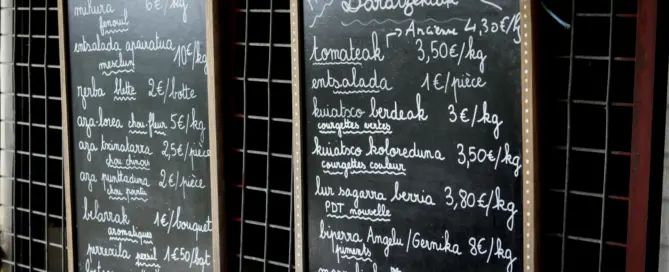 mihura 6€/kg
fenouil
entsalada aparatua 10€/kg
mesclun
zerba blette 2€/botte
aza-lorea chou-fleur 5€/kg
aza txinatarra 2,5€/pièce
chou chinois
aza punttaduna 2€/pièce
chou pointu
belarrak 1€/bouquet
aromatiques
perrexila persil 1€50/bqt
Baratzekiak
→ Ancienne 4,30€/kg
tomateak 3,50€/kg
entsalada 1€/pièce
kuiatxo berdeak 3€/kg
courgettes vertes
kuiatxo koloreduna 3,50€/kg
courgettes couleur
lur sagarra berria 3,80€/kg
PDT nouvelle
biperra Angelu/Gernika 8€/kg
piments